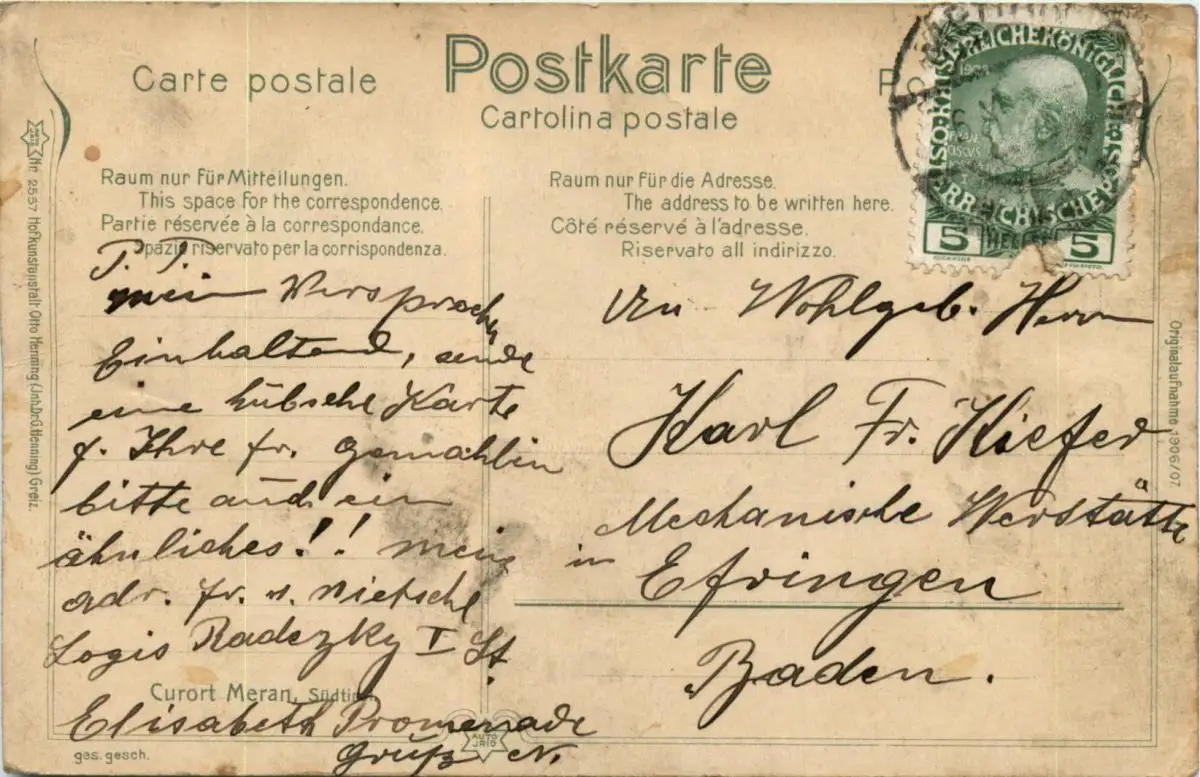 Carte postale
Postkarte
Cartolina postale
Raum nur für Mitteilungen.
This space for the correspondence.
Partie réservée à la correspondance.
Spazio riservato per la corrispondenza.
Raum nur für die Adresse.
The address to be written here.
Côté réservé à l'adresse.
Riservato all indirizzo.
KAISERLICHEKÖNIGLICHE
5 5
P. T.
mein Versprechen
Einhaltend, sende
eine hübsche Karte
f. Ihre fr. Gemahlin
bitte auch ein
ähnliches!! mein
adr. fr. v. Nietsche
Logis Radezky I St.
Elisabeth Promenade
Grüßt N.
An Wohlgeb. Herrn
Karl Fr. Kiefer
Mechanische Werstätte
in Efringen
Baden.
Curort Meran, Südtirol
ges. gesch.
AUTO
JRIS
Nr. 2557 Hofkunstanstalt Otto Henning (Jnh. Dr. G. Henning) Greiz.
Originalaufnahme 1906/07.